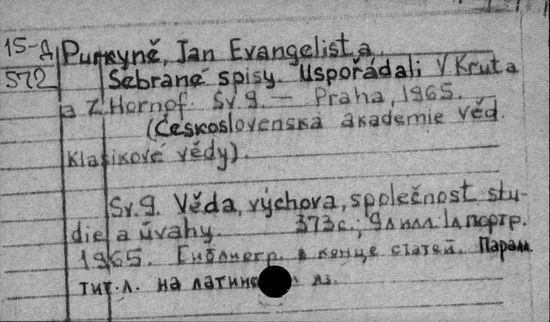 15-Д Purkyně, Jan Evangelista.
572 Sebrané spisy. Uspořádali V. Kruta
a Z. Hornof. Sv. 9. — Praha, 1965.
(Československá akademie věd.
Klasikové vědy).
Sv. 9. Věda, výchova, společnost stu-
die a úvahy. 373 с.; 9 л илл. 1 л портр.
1965. Библиогр. в конце статей. Парал.
тит. л. на латинс яз.